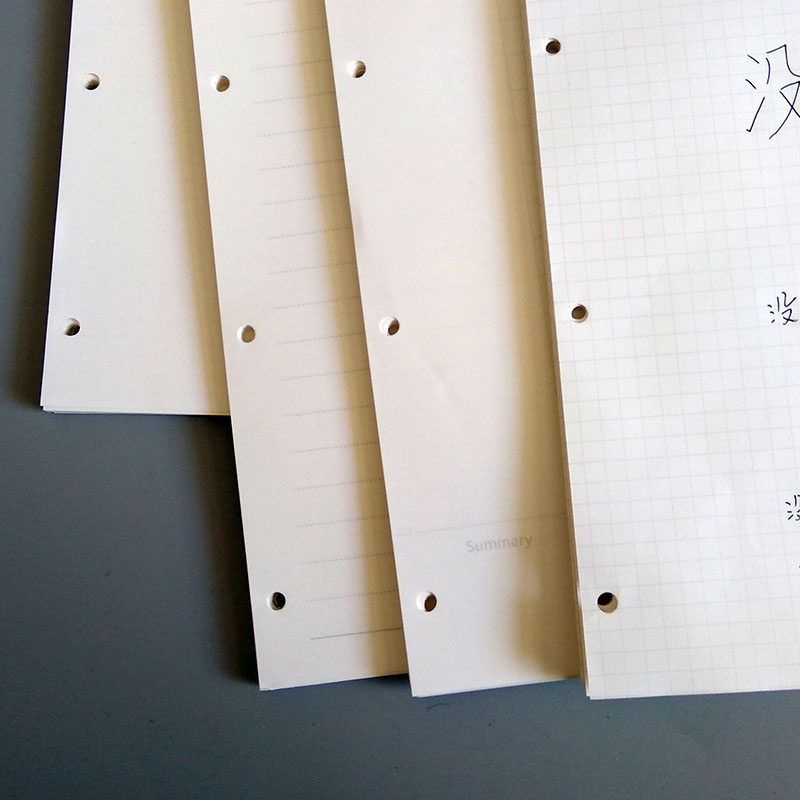 没
没
Summary